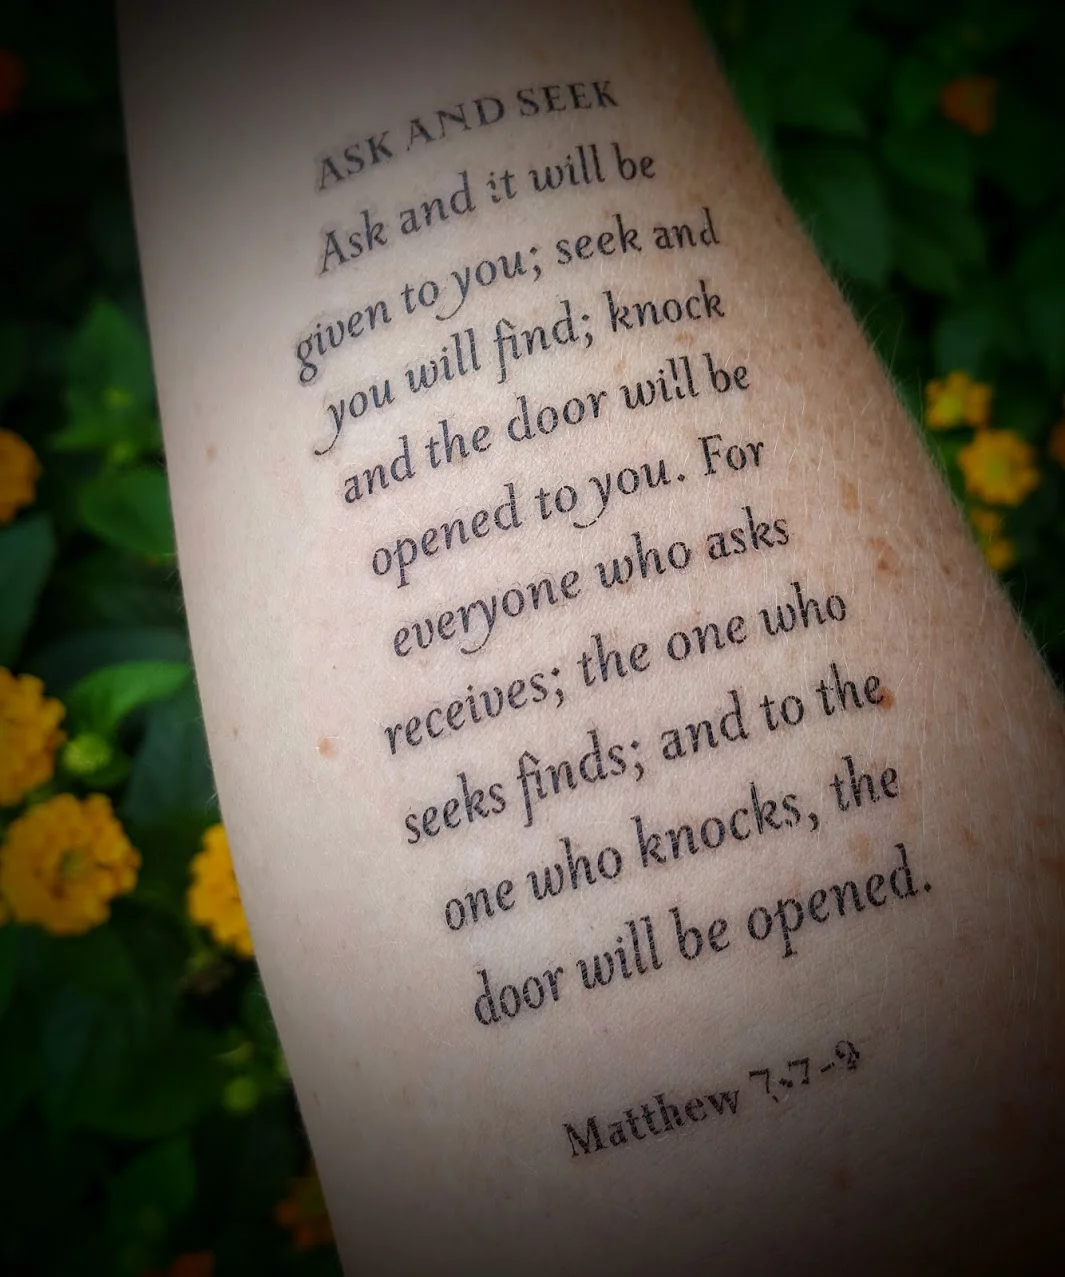 ASK AND SEEK
Ask and it will be
given to you; seek and
you will find; knock
and the door will be
opened to you. For
everyone who asks
receives; the one who
seeks finds; and to the
one who knocks, the
door will be opened.
Matthew 7:7-